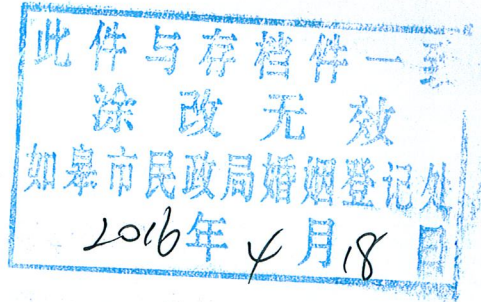 此件与存档件一致
涂改无效
如皋市民政局婚姻登记处
2016年4月18日